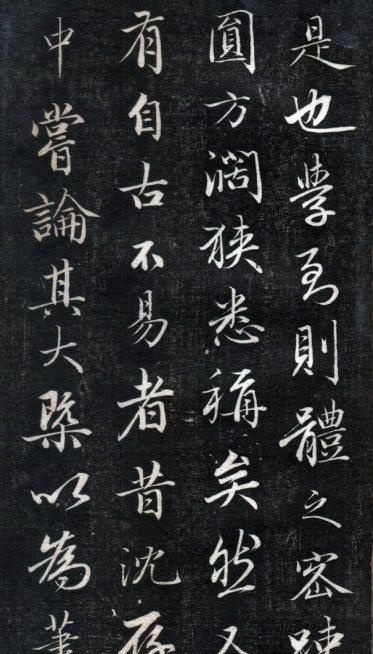 是也學至則體之密疎
圓方濶狹悉稱矣然又
有自古不易者昔沈存
中嘗論其大槩以為葢